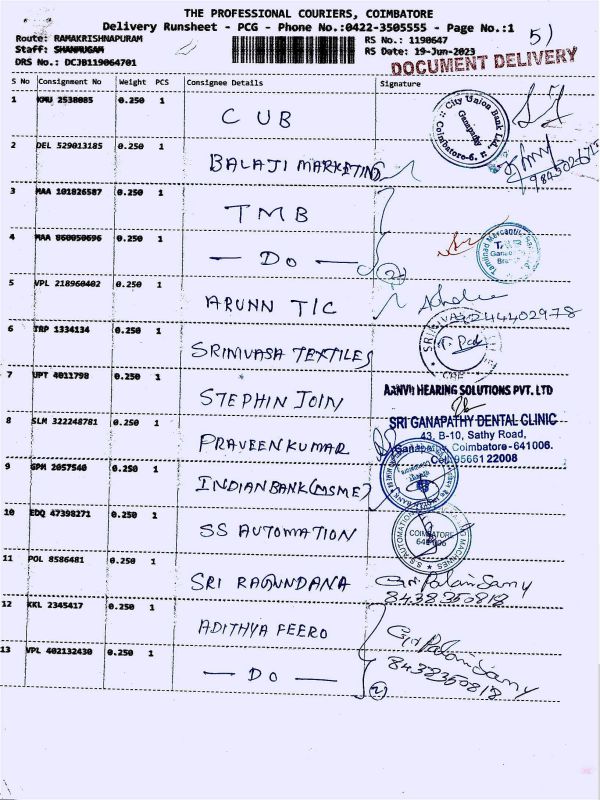 THE PROFESSIONAL COURIERS, COIMBATORE
Delivery Runsheet - PCG - Phone No.:0422-3505555 - Page No.:1
5)
Route: RAMAKRISHNAPURAM
RS No.: 1190647
Staff: SHANMUGAM
RS Date: 19-Jun-2023
DRS No.: DCJB119064701
DOCUMENT DELIVERY
S No Consignment No Weight PCS Consignee Details Signature
1 KMU 2538085 0.250 1 CUB
City Union Bank Ltd. Ganapathy Coimbatore-6.
2 DEL 529013185 0.250 1 BALAJI MARKETING
3 MAA 101826587 0.250 1 TMB
4 MAA 860050696 0.250 1 — DO —
2
5 VPL 218960402 0.250 1 ARUNN TIC
6 TRP 1334134 0.250 1 SRINIVASA TEXTILES
7 UPT 4011798 0.250 1 STEPHIN JOIN
AANVII HEARING SOLUTIONS PVT. LTD
8 SLM 322248781 0.250 1 PRAVEEN KUMAR
SRI GANAPATHY DENTAL CLINIC
43, B-10, Sathy Road,
Ganapathy, Coimbatore-641006.
Cell: 95661 22008
9 GPM 2057540 0.250 1 INDIAN BANK (MSME)
10 EDQ 47398271 0.250 1 SS AUTOMATION
COIMBATORE
641 006
11 POL 8586481 0.250 1 SRI RAGUNDANA
8438350818
12 KKL 2345417 0.250 1 ADITHYA FEERO
13 VPL 402132430 0.250 1 — DO —
8438350818
2